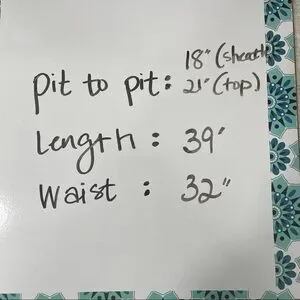 18" (sheath)
pit to pit: 21" (top)
Length: 39'
Waist: 32"